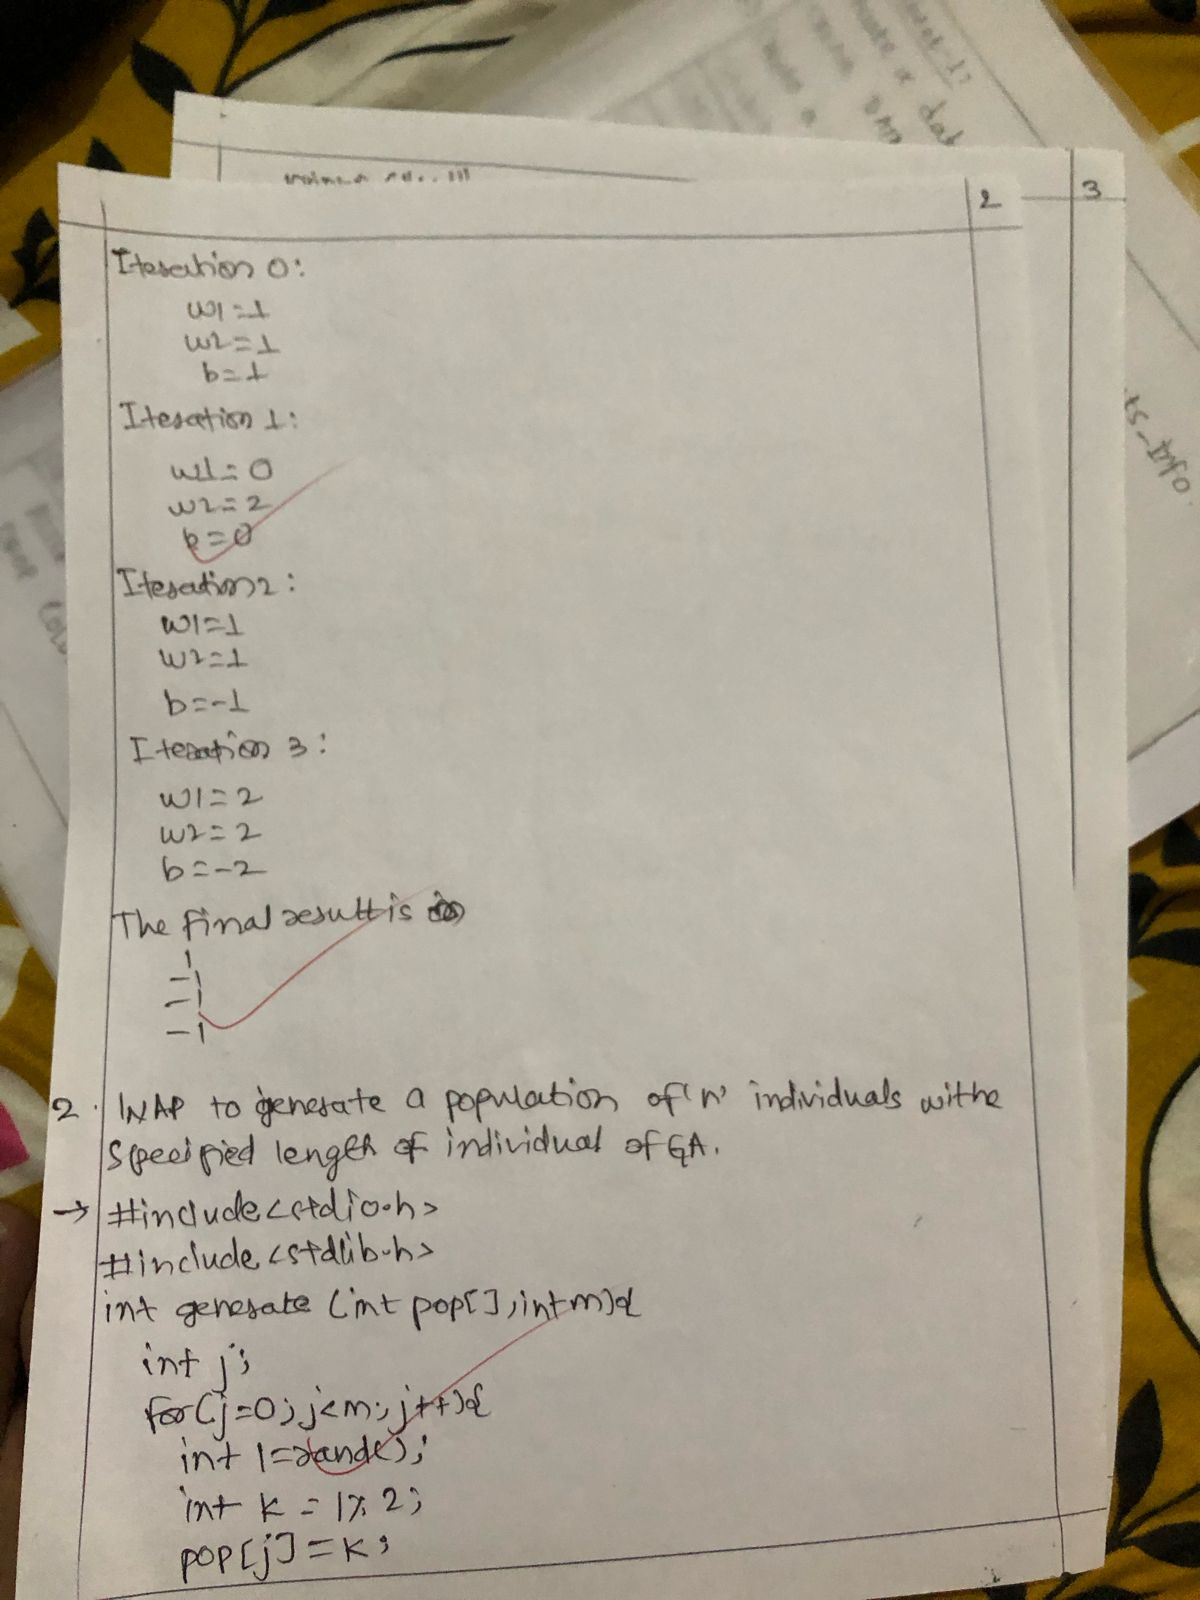 2
3
Iteration 0:
w1=1
w2=1
b=1
Iteration 1:
w1=0
w2=2
b=0
Iteration 2:
w1=1
w2=1
b=-1
Iteration 3:
w1=2
w2=2
b=-2
The final result is
1
-1
-1
-1
2. WAP to generate a population of 'n' individuals withe
specified length of individual of GA.
→ #include<stdio.h>
#include<stdlib.h>
int generate (int pop[], int m){
int j;
for(j=0; j<m; j++){
int l=rand();
int k = l% 2;
pop[j]=k;